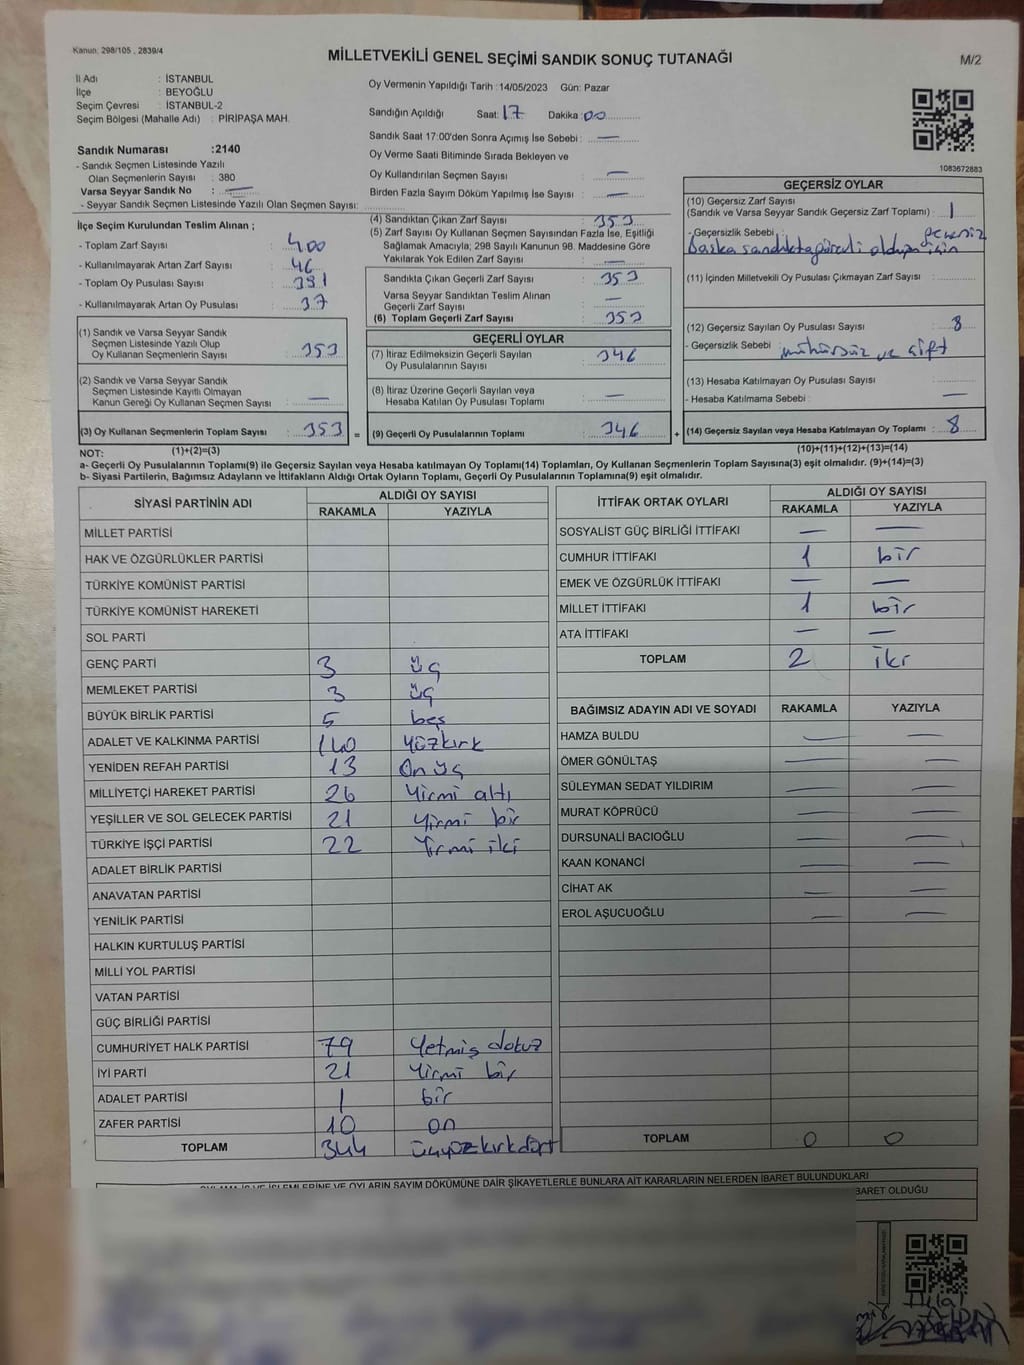 Kanun: 298/105 , 2839/4
MİLLETVEKİLİ GENEL SEÇİMİ SANDIK SONUÇ TUTANAĞI
M/2
İl Adı : İSTANBUL
İlçe : BEYOĞLU
Seçim Çevresi : İSTANBUL-2
Seçim Bölgesi (Mahalle Adı) : PİRİPAŞA MAH.
Oy Vermenin Yapıldığı Tarih : 14/05/2023 Gün: Pazar
Sandığın Açıldığı Saat: 17 Dakika : 00
Sandık Saat 17:00'den Sonra Açımış İse Sebebi : —
Oy Verme Saati Bitiminde Sırada Bekleyen ve
Oy Kullandırılan Seçmen Sayısı : —
Birden Fazla Sayım Döküm Yapılmış İse Sayısı : —
1083672883
Sandık Numarası :2140
- Sandık Seçmen Listesinde Yazılı
Olan Seçmenlerin Sayısı : 380
Varsa Seyyar Sandık No : —
- Seyyar Sandık Seçmen Listesinde Yazılı Olan Seçmen Sayısı:
İlçe Seçim Kurulundan Teslim Alınan ;
- Toplam Zarf Sayısı : 400
- Kullanılmayarak Artan Zarf Sayısı : 46
- Toplam Oy Pusulası Sayısı : 391
- Kullanılmayarak Artan Oy Pusulası : 37
(1) Sandık ve Varsa Seyyar Sandık
Seçmen Listesinde Yazılı Olup
Oy Kullanan Seçmenlerin Sayısı : 353
(2) Sandık ve Varsa Seyyar Sandık
Seçmen Listesinde Kayıtlı Olmayan
Kanun Gereği Oy Kullanan Seçmen Sayısı : —
(3) Oy Kullanan Seçmenlerin Toplam Sayısı : 353 =
(4) Sandıktan Çıkan Zarf Sayısı : 353
(5) Zarf Sayısı Oy Kullanan Seçmen Sayısından Fazla İse, Eşitliği
Sağlamak Amacıyla; 298 Sayılı Kanunun 98. Maddesine Göre
Yakılarak Yok Edilen Zarf Sayısı : —
Sandıkta Çıkan Geçerli Zarf Sayısı : 353
Varsa Seyyar Sandıktan Teslim Alınan
Geçerli Zarf Sayısı : —
(6) Toplam Geçerli Zarf Sayısı : 353
GEÇERLİ OYLAR
(7) İtiraz Edilmeksizin Geçerli Sayılan
Oy Pusulalarının Sayısı : 346
(8) İtiraz Üzerine Geçerli Sayılan veya
Hesaba Katılan Oy Pusulası Toplamı : —
(9) Geçerli Oy Pusulalarının Toplamı : 346 +
GEÇERSİZ OYLAR
(10) Geçersiz Zarf Sayısı
(Sandık ve Varsa Seyyar Sandık Geçersiz Zarf Toplamı) : 1
- Geçersizlik Sebebi : geçersiz
başka sandıkta görevli olduğu için
(11) İçinden Milletvekili Oy Pusulası Çıkmayan Zarf Sayısı :
(12) Geçersiz Sayılan Oy Pusulası Sayısı : 8
- Geçersizlik Sebebi : mühürsüz ve çift
(13) Hesaba Katılmayan Oy Pusulası Sayısı :
- Hesaba Katılmama Sebebi : —
(14) Geçersiz Sayılan veya Hesaba Katılmayan Oy Toplamı : 8
NOT: (1)+(2)=(3) (10)+(11)+(12)+(13)=(14)
a- Geçerli Oy Pusulalarının Toplamı(9) ile Geçersiz Sayılan veya Hesaba katılmayan Oy Toplamı(14) Toplamları, Oy Kullanan Seçmenlerin Toplam Sayısına(3) eşit olmalıdır. (9)+(14)=(3)
b- Siyasi Partilerin, Bağımsız Adayların ve İttifakların Aldığı Ortak Oyların Toplamı, Geçerli Oy Pusulalarının Toplamına(9) eşit olmalıdır.
SİYASİ PARTİNİN ADI ALDIĞI OY SAYISI
RAKAMLA YAZIYLA
MİLLET PARTİSİ
HAK VE ÖZGÜRLÜKLER PARTİSİ
TÜRKİYE KOMÜNİST PARTİSİ
TÜRKİYE KOMÜNİST HAREKETİ
SOL PARTİ
GENÇ PARTİ 3 üç
MEMLEKET PARTİSİ 3 üç
BÜYÜK BİRLİK PARTİSİ 5 beş
ADALET VE KALKINMA PARTİSİ 140 yüzkırk
YENİDEN REFAH PARTİSİ 13 On üç
MİLLİYETÇİ HAREKET PARTİSİ 26 Yirmi altı
YEŞİLLER VE SOL GELECEK PARTİSİ 21 Yirmi bir
TÜRKİYE İŞÇİ PARTİSİ 22 Yirmi iki
ADALET BİRLİK PARTİSİ
ANAVATAN PARTİSİ
YENİLİK PARTİSİ
HALKIN KURTULUŞ PARTİSİ
MİLLİ YOL PARTİSİ
VATAN PARTİSİ
GÜÇ BİRLİĞİ PARTİSİ
CUMHURİYET HALK PARTİSİ 79 Yetmiş dokuz
İYİ PARTİ 21 Yirmi bir
ADALET PARTİSİ 1 bir
ZAFER PARTİSİ 10 on
TOPLAM 344 üçyüzkırkdört
İTTİFAK ORTAK OYLARI ALDIĞI OY SAYISI
RAKAMLA YAZIYLA
SOSYALİST GÜÇ BİRLİĞİ İTTİFAKI — —
CUMHUR İTTİFAKI 1 bir
EMEK VE ÖZGÜRLÜK İTTİFAKI — —
MİLLET İTTİFAKI 1 bir
ATA İTTİFAKI — —
TOPLAM 2 iki
BAĞIMSIZ ADAYIN ADI VE SOYADI RAKAMLA YAZIYLA
HAMZA BULDU — —
ÖMER GÖNÜLTAŞ — —
SÜLEYMAN SEDAT YILDIRIM — —
MURAT KÖPRÜCÜ — —
DURSUNALİ BACIOĞLU — —
KAAN KONANCİ — —
CİHAT AK — —
EROL AŞUCUOĞLU — —
TOPLAM 0 0
OYLAMA İŞ VE İŞLEMLERİNE VE OYLARIN SAYIM DÖKÜMÜNE DAİR ŞİKAYETLERLE BUNLARA AİT KARARLARIN NELERDEN İBARET BULUNDUKLARI
BARET OLDUĞU